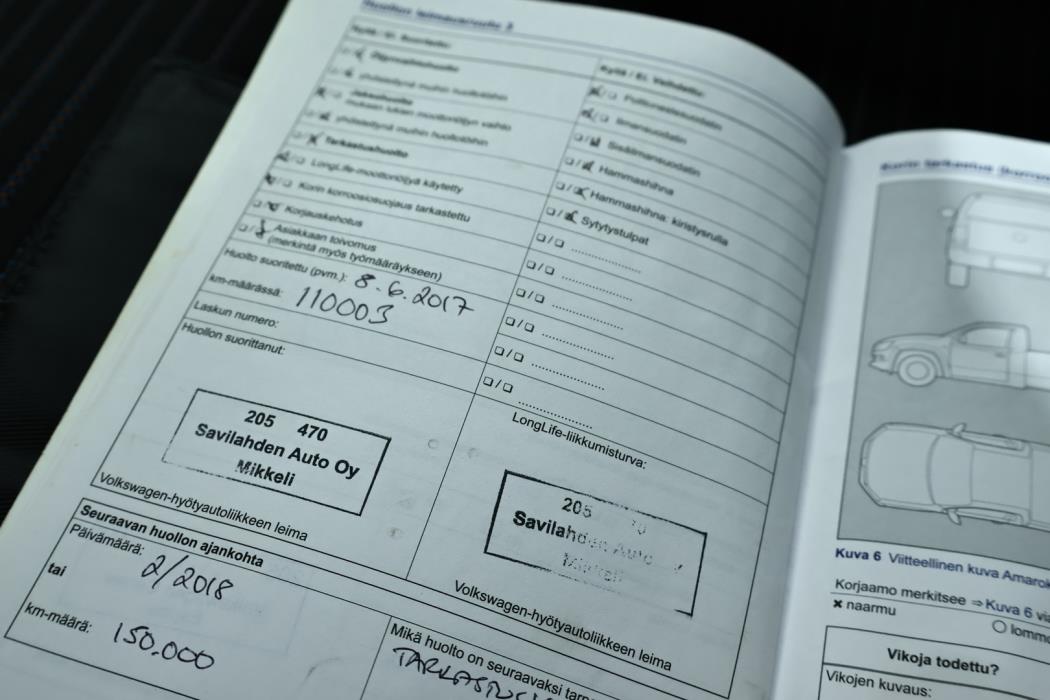 Huollon leimausruutu 3
Kyllä / Ei. Suoritettu:
Öljynvaihtohuolto
yhdistettynä muihin huoltotöihin
Jaksohuolto
mukaan lukien moottoriöljyn vaihto
yhdistettynä muihin huoltotöihin
Tarkastushuolto
LongLife-moottoriöljyä käytetty
Korin korroosiosuojaus tarkastettu
Korjauskehotus
Asiakkaan toivomus
(merkintä myös työmääräykseen)
Huolto suoritettu (pvm.): 8.6.2017
km-määrässä: 110003
Laskun numero:
Huollon suorittanut:
205 470
Savilahden Auto Oy
Mikkeli
Volkswagen-hyötyautoliikkeen leima
Kyllä / Ei. Vaihdettu:
Polttoainesuodatin
Ilmansuodatin
Sisäilmansuodatin
Hammashihna
Hammashihna: kiristysrulla
Sytytystulpat
LongLife-liikkumisturva:
205
Savilahden Auto
Mikkeli
Volkswagen-hyötyautoliikkeen leima
Seuraavan huollon ajankohta
Päivämäärä: 2/2018
tai
km-määrä: 150.000
Mikä huolto on seuraavaksi
Korin tarkastus
Kuva 6 Viitteellinen kuva Amarok
Korjaamo merkitsee ⇒ Kuva 6
× naarmu
Vikoja todettu?
Vikojen kuvaus: